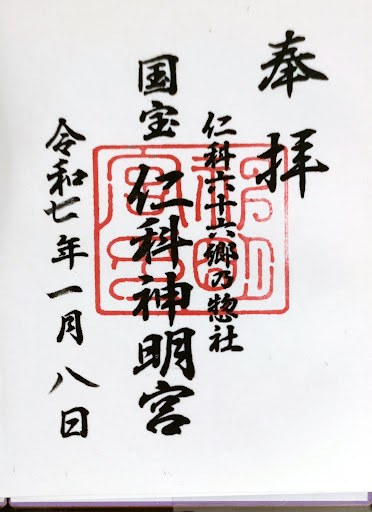 奉拝
仁科六十六郷乃惣社
国宝 仁科神明宮
令和七年一月八日
神明宮印